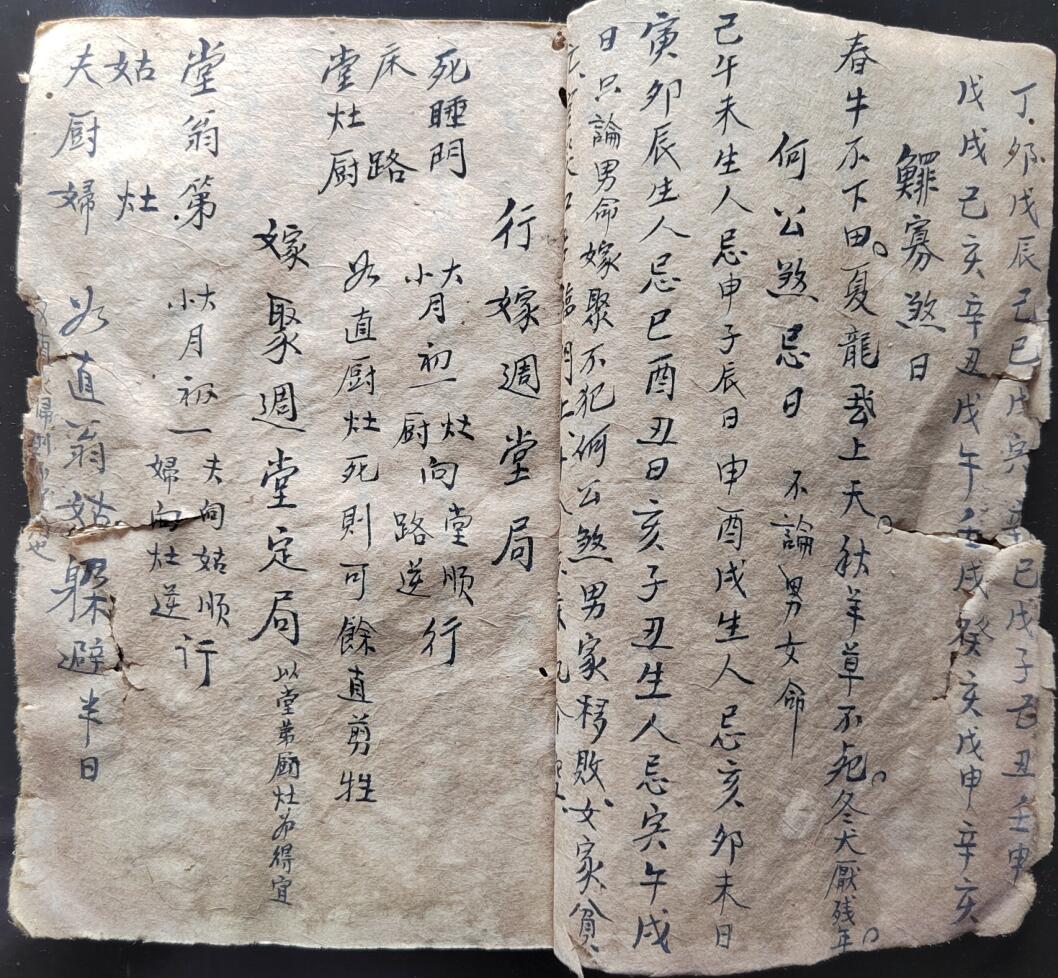 丁卯戊辰己巳戊寅辛巳戊子己丑壬申
戊戌己亥辛丑戊午壬戌癸亥戊申辛亥
鰥寡煞日
春牛不下田。夏龍飛上天。秋羊草不死。冬犬厭残年。
何公煞忌日 不論男女命
己午未生人忌申子辰日申酉戌生人忌亥卯未日
寅卯辰生人忌巳酉丑日亥子丑生人忌寅午戌
日只論男命嫁聚不犯何公煞男家移敗女家貧
行嫁週堂局
死睡門
床路
堂灶厨
大月初一灶向堂順行
小月初一厨向路逆行
如直厨灶死則可餘直剪牲
嫁聚週堂定局 以堂第厨灶为得宜
堂翁第
姑灶
夫厨婦
大月初一夫向姑順行
小月初一婦向灶逆行
如直翁姑躲避半日